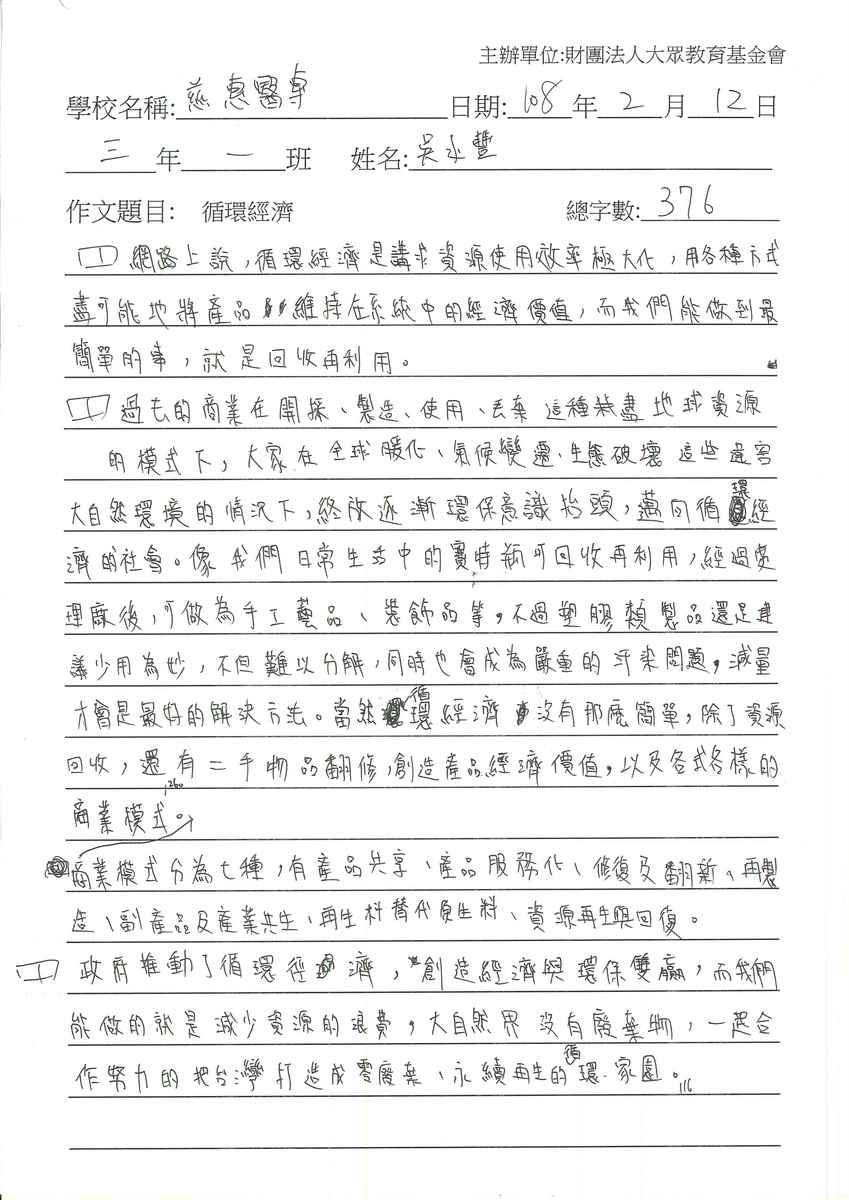 主辦單位:財團法人大眾教育基金會
學校名稱: 慈惠醫專 日期: 108 年 2 月 12 日
三 年 一 班 姓名: 吳永豐
作文題目: 循環經濟 總字數: 376
網路上說，循環經濟是講求資源使用效率極大化，用各種方式
盡可能地將產品維持在系統中的經濟價值，而我們能做到最
簡單的事，就是回收再利用。
過去的商業在開採、製造、使用、丟棄這種耗盡地球資源
的模式下，大家在全球暖化、氣候變遷、生態破壞這些危害
大自然環境的情況下，終於逐漸環保意識抬頭，邁向循環經
濟的社會。像我們日常生活中的寶特瓶可回收再利用，經過處
理廠後，可做為手工藝品、裝飾品等。不過塑膠類製品還是建
議少用為妙，不但難以分解，同時也會成為嚴重的汙染問題，減量
才會是最好的解決方法。當然循環經濟沒有那麼簡單，除了資源
回收，還有二手物品翻修，創造產品經濟價值，以及各式各樣的
商業模式。
260
商業模式分為七種，有產品共享、產品服務化、修復及翻新、再製
造、副產品及產業共生、再生料替代原生料、資源再生與回復。
政府推動了循環徑濟，創造經濟與環保雙贏，而我們
能做的就是減少資源的浪費，大自然界沒有廢棄物，一起合
作努力的把台灣打造成零廢棄、永續再生的循環家園。
116